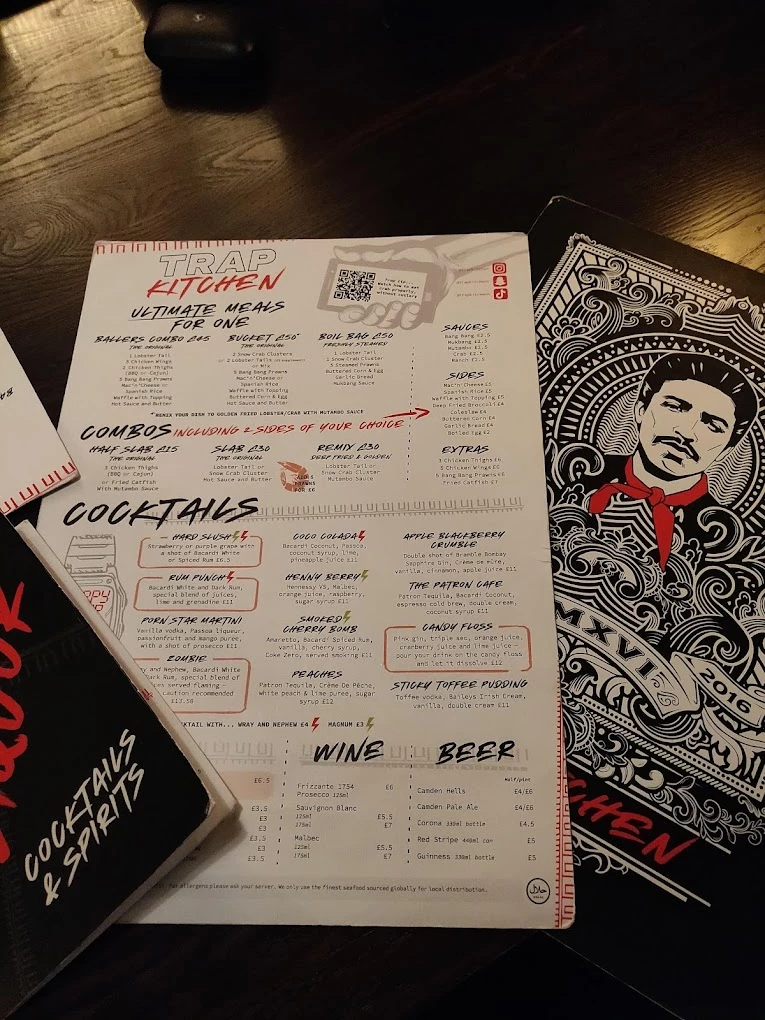 TRAP
KITCHEN
Trap Tip..
Watch how to eat
crab properly,
without cutlery
ULTIMATE MEALS
FOR ONE
BALLERS COMBO £45
THE ORIGINAL
1 Lobster Tail
3 Chicken Wings
2 Chicken Thighs
(BBQ or Cajun)
5 Bang Bang Prawns
Mac'n'Cheese or
Spanish Rice
Waffle with Topping
Buttered Corn & Egg
Hot Sauce and Butter
BUCKET £50*
THE ORIGINAL
2 Snow Crab Clusters
or 2 Lobster Tails
or Mix
5 Bang Bang Prawns
Mac'n'Cheese or
Spanish Rice
Waffle with Topping
Buttered Corn & Egg
Hot Sauce and Butter
BOIL BAG £50
FRESHLY STEAMED
1 Lobster Tail
1 Snow Crab Cluster
5 Steamed Prawns
Buttered Corn & Egg
Garlic Bread
Mukbang Sauce
*REMIX YOUR DISH TO GOLDEN FRIED LOBSTER/CRAB WITH MUTAMBO SAUCE
SAUCES
Bang Bang £2.5
Mukbang £2.5
Mutambo £2.5
Crab £2.5
Ranch £2.5
SIDES
Mac'n'Cheese £5
Spanish Rice £5
Waffle with Topping £5
Deep Fried Broccoli £4
Coleslaw £4
Buttered Corn £4
Garlic Bread £4
Boiled Egg £2
EXTRAS
3 Chicken Thighs £6
5 Chicken Wings £6
5 Bang Bang Prawns £6
Fried Catfish £7
COMBOS INCLUDING 2 SIDES OF YOUR CHOICE
HALF SLAB £25
THE ORIGINAL
3 Chicken Thighs
(BBQ or Cajun)
or Fried Catfish
With Mutambo Sauce
SLAB £30
THE ORIGINAL
Lobster Tail or
Snow Crab Cluster
Hot Sauce and Butter
ADD 5
PRAWNS
FOR £6
REMIX £30
DEEP FRIED & GOLDEN
Lobster Tail or
Snow Crab Cluster
Mutambo Sauce
COCKTAILS
HARD SLUSH
Strawberry or purple grape with
a shot of Bacardi White
or Spiced Rum £6.5
RUM PUNCH
Bacardi White and Dark Rum,
special blend of juices,
lime and grenadine £11
PORN STAR MARTINI
Vanilla vodka, Passoa liqueur,
passionfruit and mango puree,
with a shot of prosecco £11
ZOMBIE
and Nephew, Bacardi White
Dark Rum, special blend of
served flaming -
caution recommended
£13.50
COCO COLADA
Bacardi Coconut, Passoa,
coconut syrup, lime,
pineapple juice £11
HENNY BERRY
Hennessy VS, Malbec,
orange juice, raspberry,
sugar syrup £11
SMOKED
CHERRY BOMB
Amaretto, Bacardi Spiced Rum,
vanilla, cherry syrup,
Coke Zero, served smoking £11
PEACHES
Patron Tequila, Crème De Pêche,
white peach & lime puree, sugar
syrup £12
APPLE BLACKBERRY
CRUMBLE
Double shot of Bramble Bombay
Sapphire Gin, Crème de mûre,
vanilla, cinnamon, apple juice £11
THE PATRON CAFE
Patron Tequila, Bacardi Coconut,
espresso cold brew, double cream,
coconut syrup £11
CANDY FLOSS
Pink gin, triple sec, orange juice,
cranberry juice and lime juice -
pour your drink on the candy floss
and let it dissolve £12
STICKY TOFFEE PUDDING
Toffee vodka, Baileys Irish Cream,
vanilla, double cream £11
COCKTAIL WITH... WRAY AND NEPHEW £4 MAGNUM £3
£6.5
£3.5
£3
£3
£3
£3.5
WINE
Frizzante 1754 £6
Prosecco 125ml
Sauvignon Blanc
125ml £5.5
175ml £7
Malbec
125ml £5.5
175ml £7
BEER
Half/pint
Camden Hells £4/£6
Camden Pale Ale £4/£6
Corona 330ml bottle £4.5
Red Stripe 440ml can £5
Guinness 330ml bottle £5
For allergens please ask your server. We only use the finest seafood sourced globally for local distribution.
حلال
HALAL
COCKTAILS
& SPIRITS
MXVI
2016
CHEN